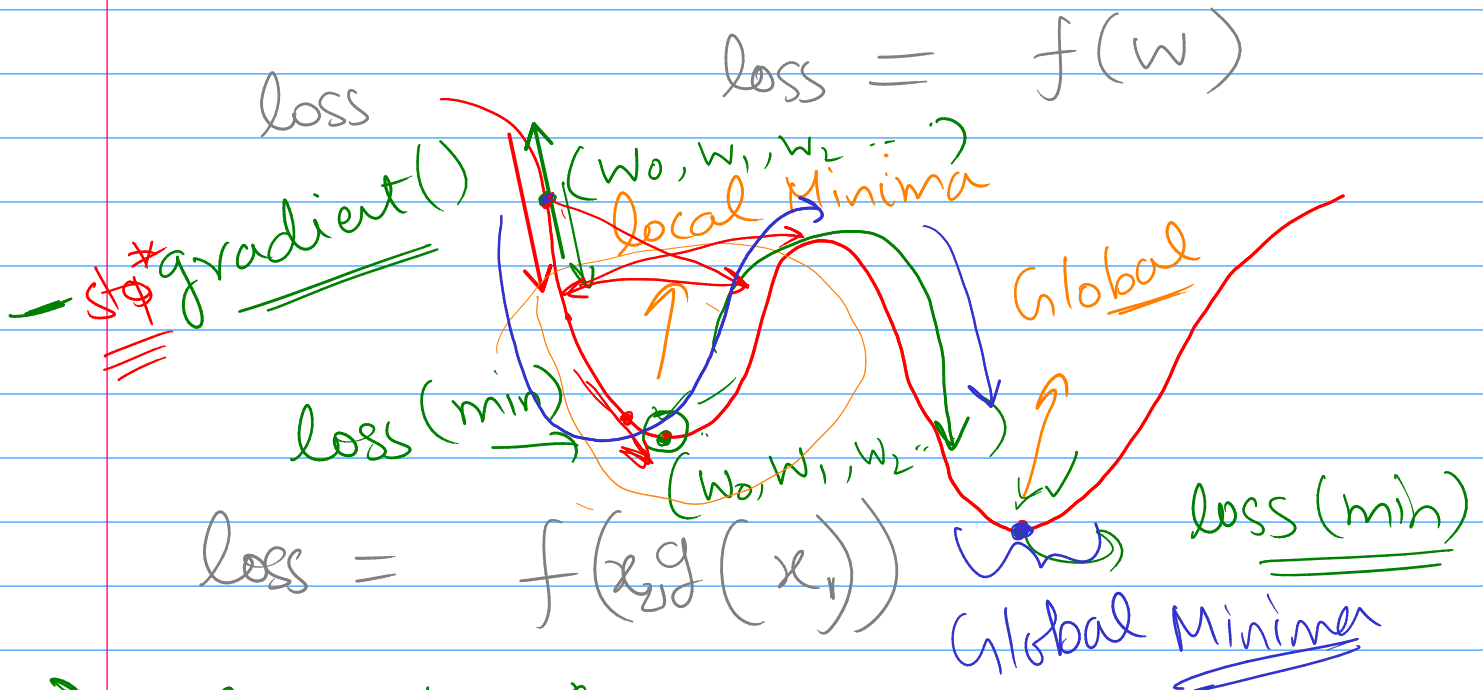 loss = f(w)
loss
(w0, w1, w2 ...)
local Minima
- * gradient()
Global
loss(min)
(w0, w1, w2 ..)
loss(min)
loss = f(x2g(x1))
Global Minima